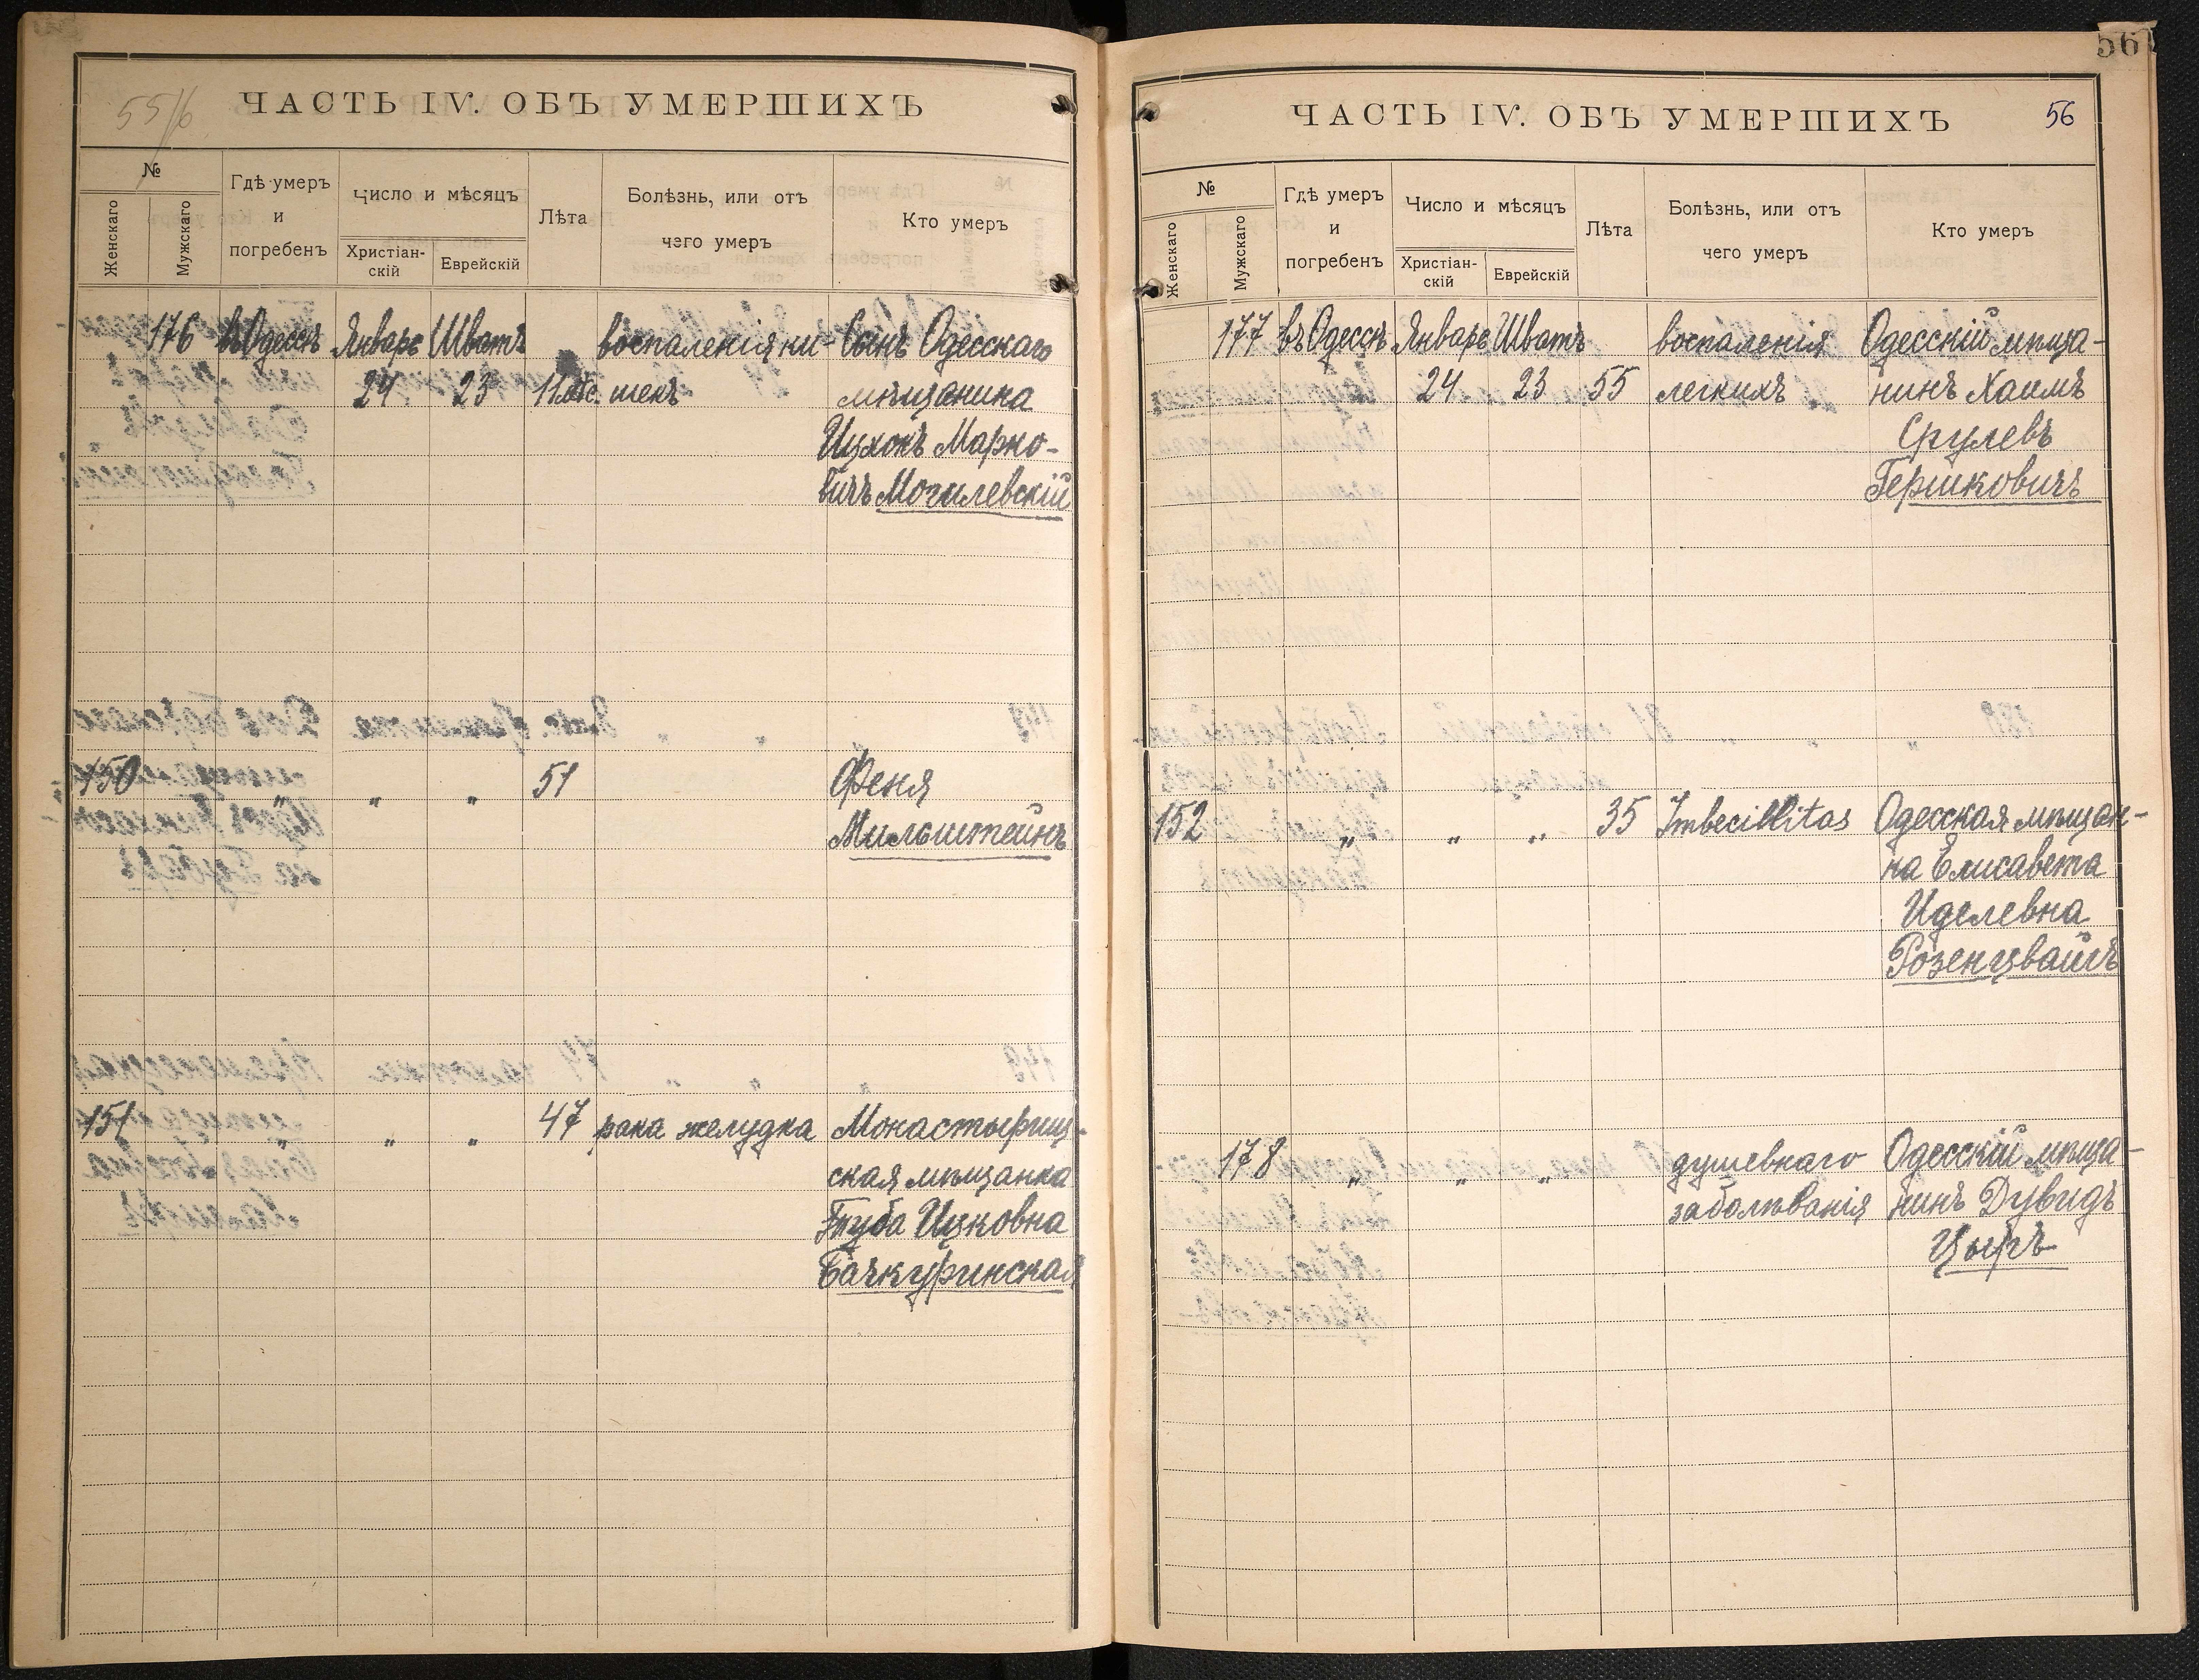 55/6
ЧАСТЬ IV. ОБЪ УМЕРШИХЪ
№
Женскаго
Мужскаго
Гдѣ умеръ
и
погребенъ
Число и мѣсяцъ
Христіан-
скій
Еврейскій
Лѣта
Болѣзнь, или отъ
чего умеръ
Кто умеръ
176 въ Одессѣ Январь Шватъ воспаленія ки- Сынъ Одесскаго
24 23 11 мѣс. шекъ мѣщанина
Ицхокъ Марко-
вичъ Могилевскій
150 „ „ „ 51 Феня
Мильштейнъ
151 „ „ „ 47 рака желудка Монастырищ-
ская мѣщанка
Туба Ицковна
Бачкуринская
561
ЧАСТЬ IV. ОБЪ УМЕРШИХЪ 56
№
Женскаго
Мужскаго
Гдѣ умеръ
и
погребенъ
Число и мѣсяцъ
Христіан-
скій
Еврейскій
Лѣта
Болѣзнь, или отъ
чего умеръ
Кто умеръ
177 въ Одессѣ Январь Шватъ воспаленія Одесскій мѣща-
24 23 55 легкихъ нинъ Хаимъ
Срулевъ
Гершковичъ
152 „ „ „ 35 Imbecillitas Одесская мѣщан-
ка Елисавета
Иделевна
Розенцвайгъ
178 „ „ „ душевнаго Одесскій мѣща-
заболѣванія нинъ Дувидъ
Цыргъ